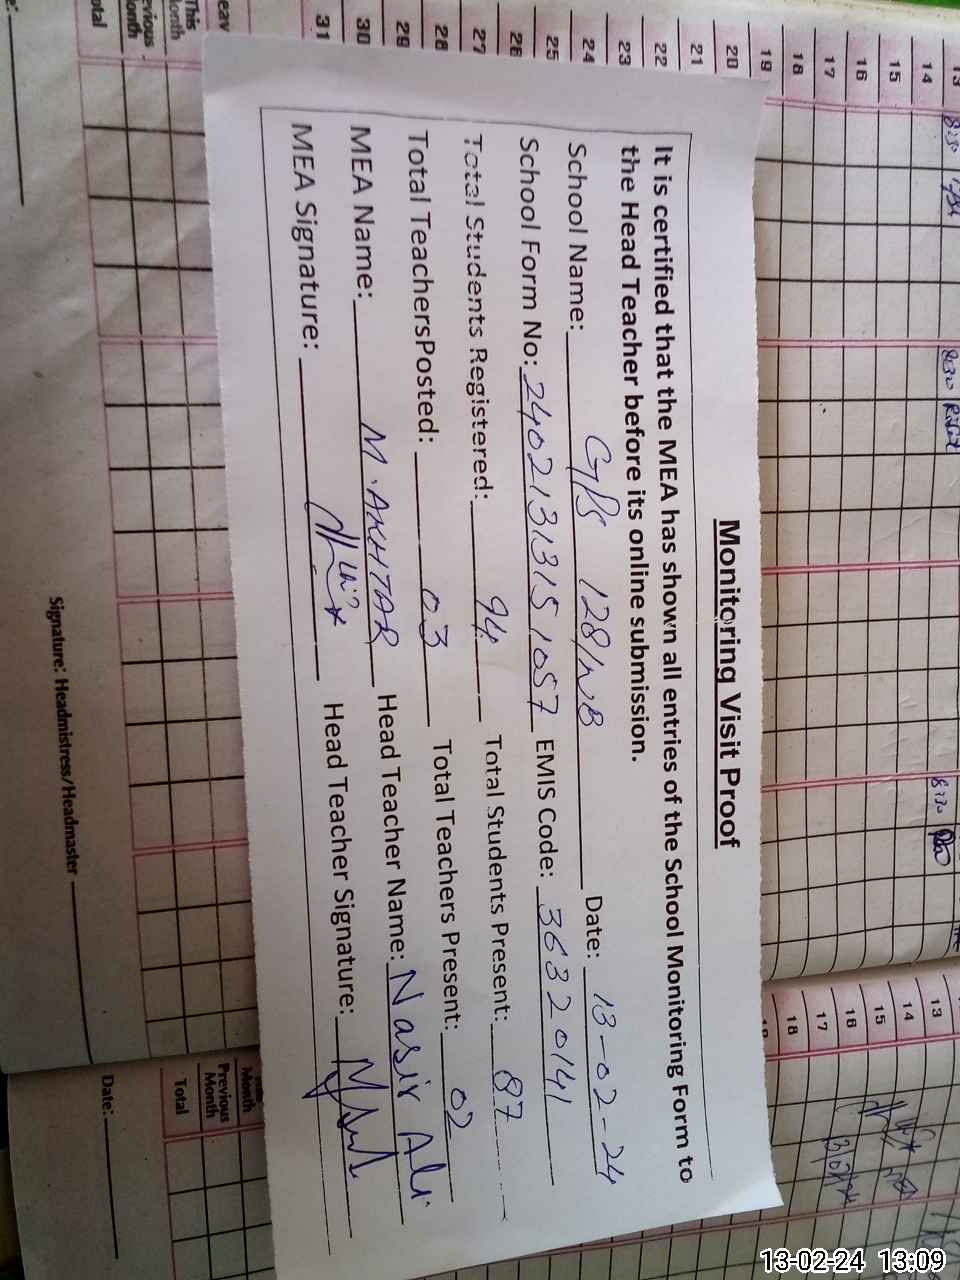 Monitoring Visit Proof
It is certified that the MEA has shown all entries of the School Monitoring Form to
the Head Teacher before its online submission.
School Name: GPS 128/WB Date: 13-02-24
School Form No: 24021313151057 EMIS Code: 36320141
Total Students Registered: 94 Total Students Present: 87
Total TeachersPosted: 03 Total Teachers Present: 02
MEA Name: M. AKHTAR Head Teacher Name: Nasir Ali
MEA Signature: Head Teacher Signature:
13 14 15 16 17 18 19 20 21 22 23 24 25 26 27 28 29 30 31
This Month
Previous Month
Signature: Headmistress/Headmaster
13 14 15 16 17 18
Month
Previous Month
Total
Date:
8:30
8:30
8:30
13-02-24 13:09